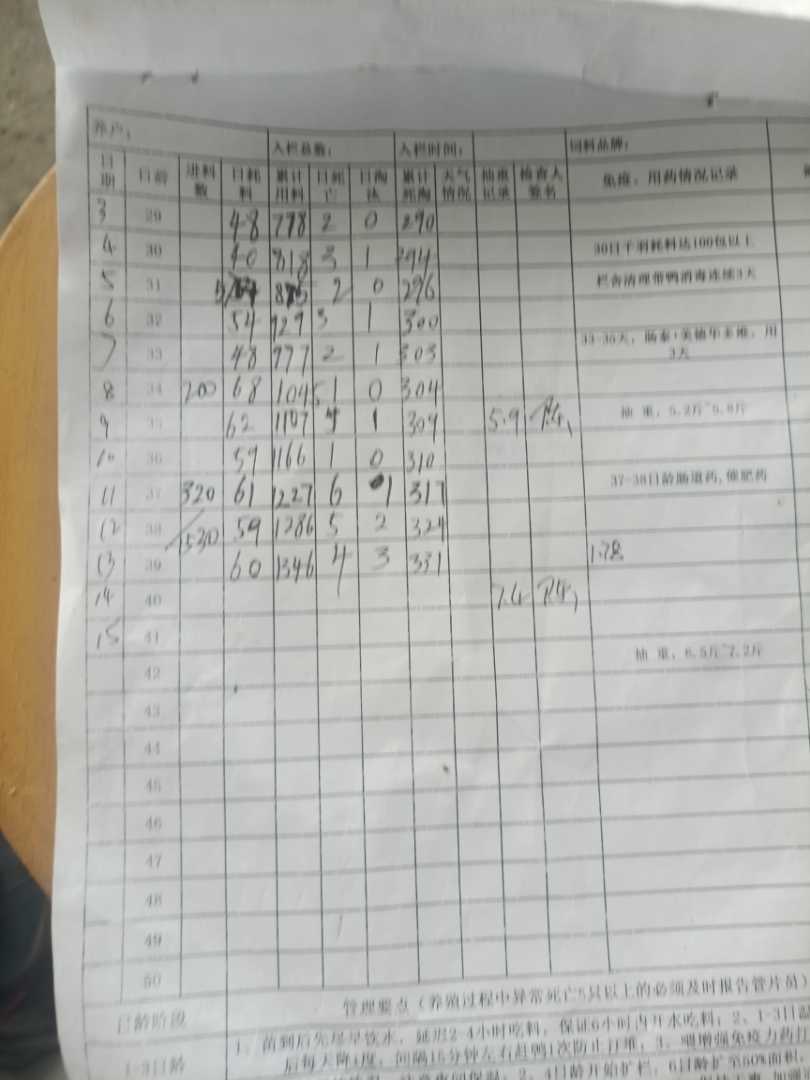 养户： 入栏总数： 入栏时间： 饲料品牌：
日期 日龄 进料数 日耗料 累计用料 日死亡 日淘汰 累计死淘 天气情况 抽重记录 检查人签名 免疫、用药情况记录
3 29 48 778 2 0 290
4 30 40 818 3 1 294 30日千羽耗料达100包以上
5 31 875 2 0 296 栏舍清理带鸭消毒连续3天
6 32 54 929 3 1 300
7 33 48 977 2 1 303 33-35天，肠泰+美德华多维，用3天
8 34 200 68 1045 1 0 304
9 35 62 1107 4 1 309 5.9 抽 重，5.2斤~5.8斤
10 36 59 1166 1 0 310
11 37 320 61 1227 6 1 317 37-38日龄肠道药，催肥药
12 38 /1530 59 1286 5 2 324
13 39 60 1346 4 3 331 1.78
14 40 7.4
15 41 抽 重，6.5斤~7.2斤
42
43
44
45
46
47
48
49
50
日龄阶段 管理要点（养殖过程中异常死亡5只以上的必须及时报告管片员）
1-3日龄 1、苗到后先尽早饮水，延迟2-4小时吃料，保证6小时内开水吃料；2、1-3日温
后每天降1度，间隔15分钟左右赶鸭1次防止打堆；3、
2、4日龄开始扩栏，6日龄扩至50%面积，